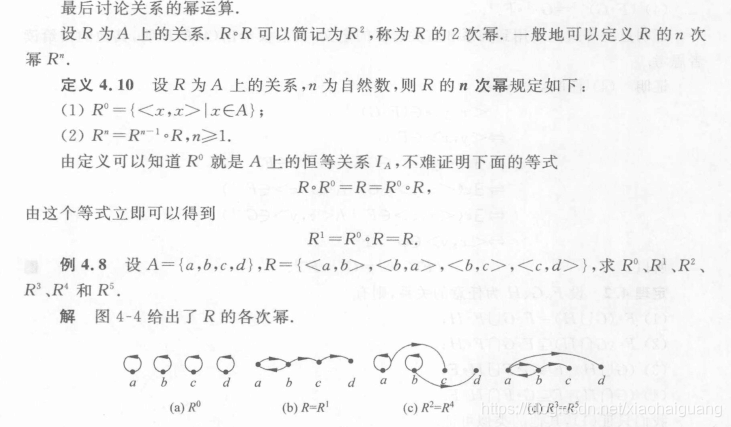 最后讨论关系的幂运算.
设 R 为 A 上的关系. R∘R 可以简记为 R², 称为 R 的 2 次幂. 一般地可以定义 R 的 n 次
幂 Rⁿ.
定义 4.10 设 R 为 A 上的关系, n 为自然数, 则 R 的 n 次幂规定如下:
(1) R⁰={<x,x>|x∈A};
(2) Rⁿ=Rⁿ⁻¹∘R, n≥1.
由定义可以知道 R⁰ 就是 A 上的恒等关系 I_A, 不难证明下面的等式
R∘R⁰=R=R⁰∘R,
由这个等式立即可以得到
R¹=R⁰∘R=R.
例 4.8 设 A={a,b,c,d}, R={<a,b>,<b,a>,<b,c>,<c,d>}, 求 R⁰、R¹、R²、
R³、R⁴ 和 R⁵.
解 图 4-4 给出了 R 的各次幂.
a b c d a b c d a b c d a b c d
(a) R⁰ (b) R=R¹ (c) R²=R⁴ (d) R³=R⁵